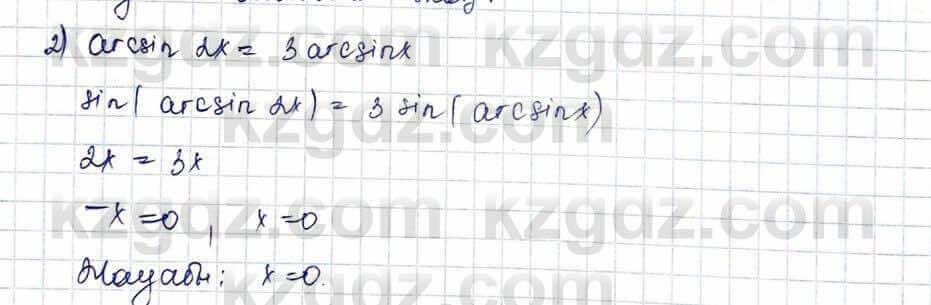 2) arcsin 2x = 3 arcsinx
sin( arcsin 2x) = 3 sin( arcsinx)
2x = 3x
-x=0, x=0
Жауабы: x=0.
kzgdz.com kzgdz.com
kzgdz.com
kzgdz.com kzgdz.com
kzgdz.com